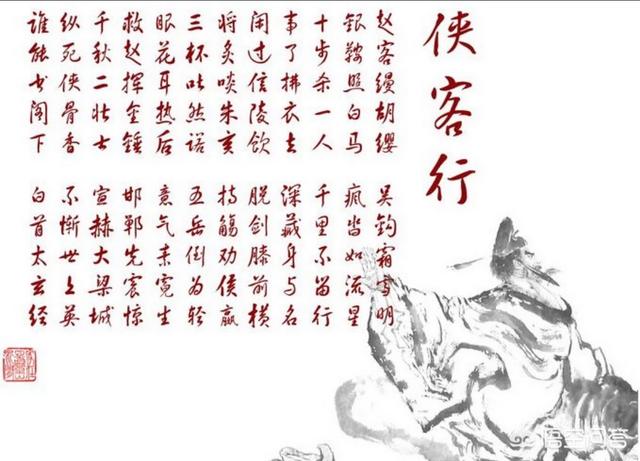 侠客行
赵客缦胡缨
吴钩霜雪明
银鞍照白马
疯沓如流星
十步杀一人
千里不留行
事了拂衣去
深藏身与名
闲过信陵饮
脱剑膝前横
将炙啖朱亥
持觞劝侯嬴
三杯吐然诺
五岳倒为轻
眼花耳热后
意气素霓生
救赵挥金锤
邯郸先震惊
千秋二壮士
宣赫大梁城
纵死侠骨香
不惭世上英
谁能书阁下
白首太玄经
悟空问答